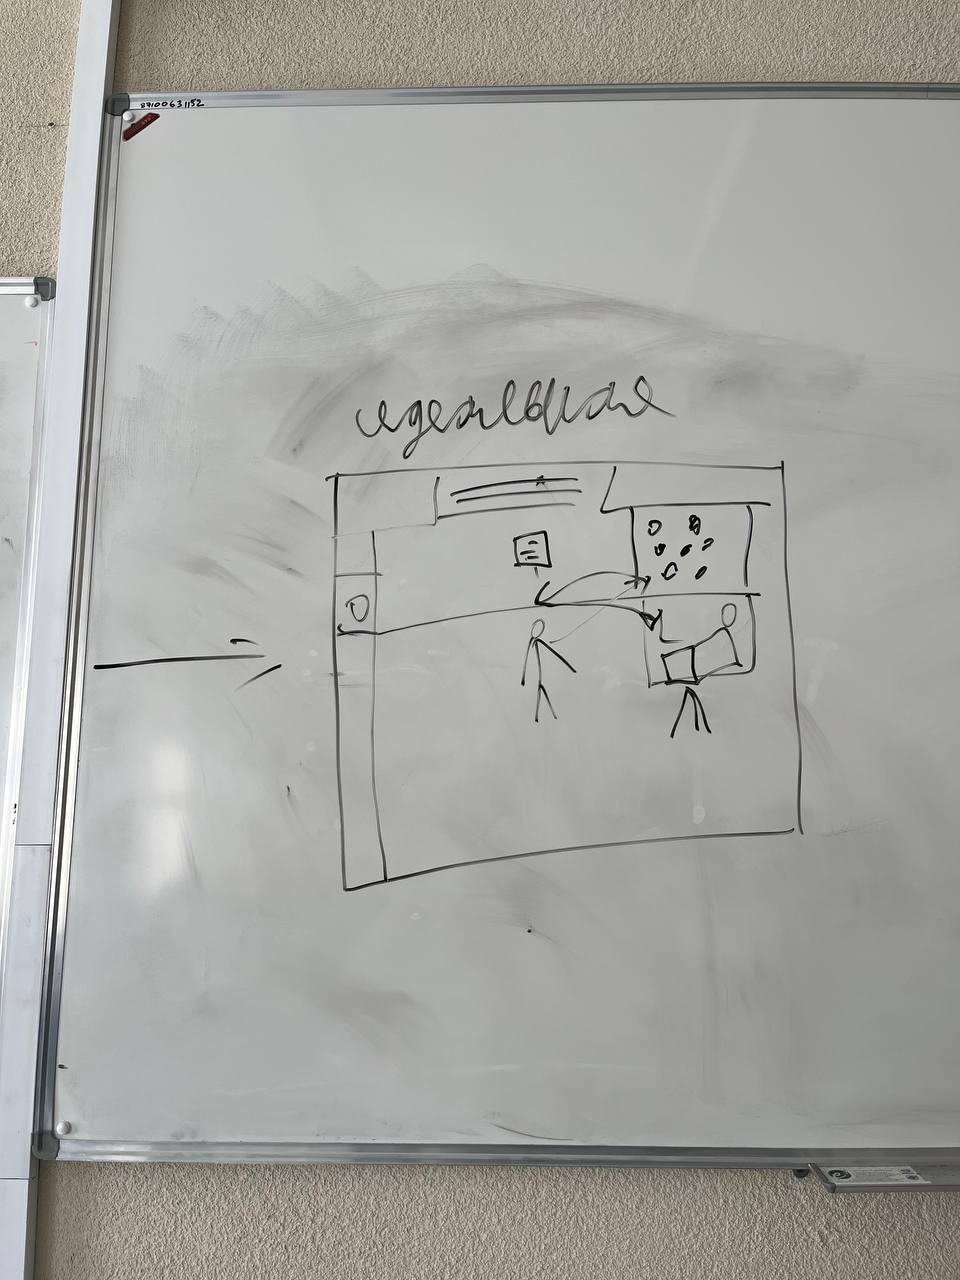 87100631152
идеальные